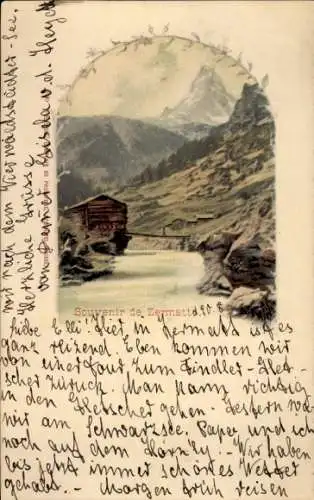 Souvenir de Zermatt
20. 8.
Liebe Elli! Hier in Zermatt ist es
ganz reizend. Eben kommen wir
von einer Tour zum Findler-Glet-
scher zurück. Man kann richtig
in den Gletscher gehen. Gestern wa
wir am Schwarzsee. Papa und ich
noch auf dem Hörnly. - Wir haben
bis jetzt immer schönes Wetter
gehabt. - Morgen früh reisen
wir nach dem Vierwaldstädter-See.
Herzliche Grüsse
von Deiner v. d. Heydt